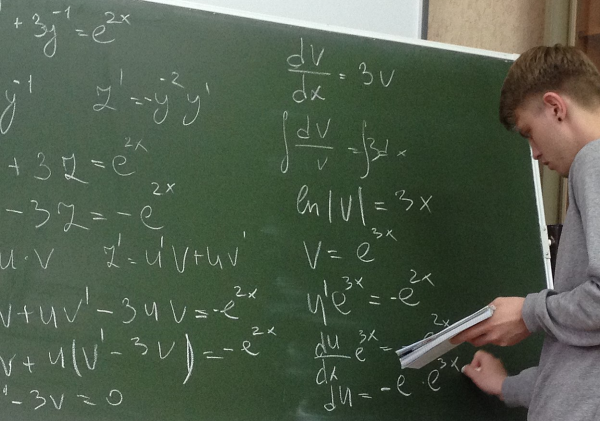 + 3y⁻¹ = e²ˣ
y⁻¹ z' = -y⁻² y'
+ 3z = e²ˣ
- 3z = -e²ˣ
u·v z' = u'v + uv'
v + uv' - 3uv = -e²ˣ
v + u(v' - 3v) = -e²ˣ
' - 3v = 0
dv/dx = 3v
∫ dv/v = ∫3dx
ln|v| = 3x
v = e³ˣ
u'e³ˣ = -e²ˣ
du/dx e³ˣ = e²ˣ
du = -e · e³ˣ